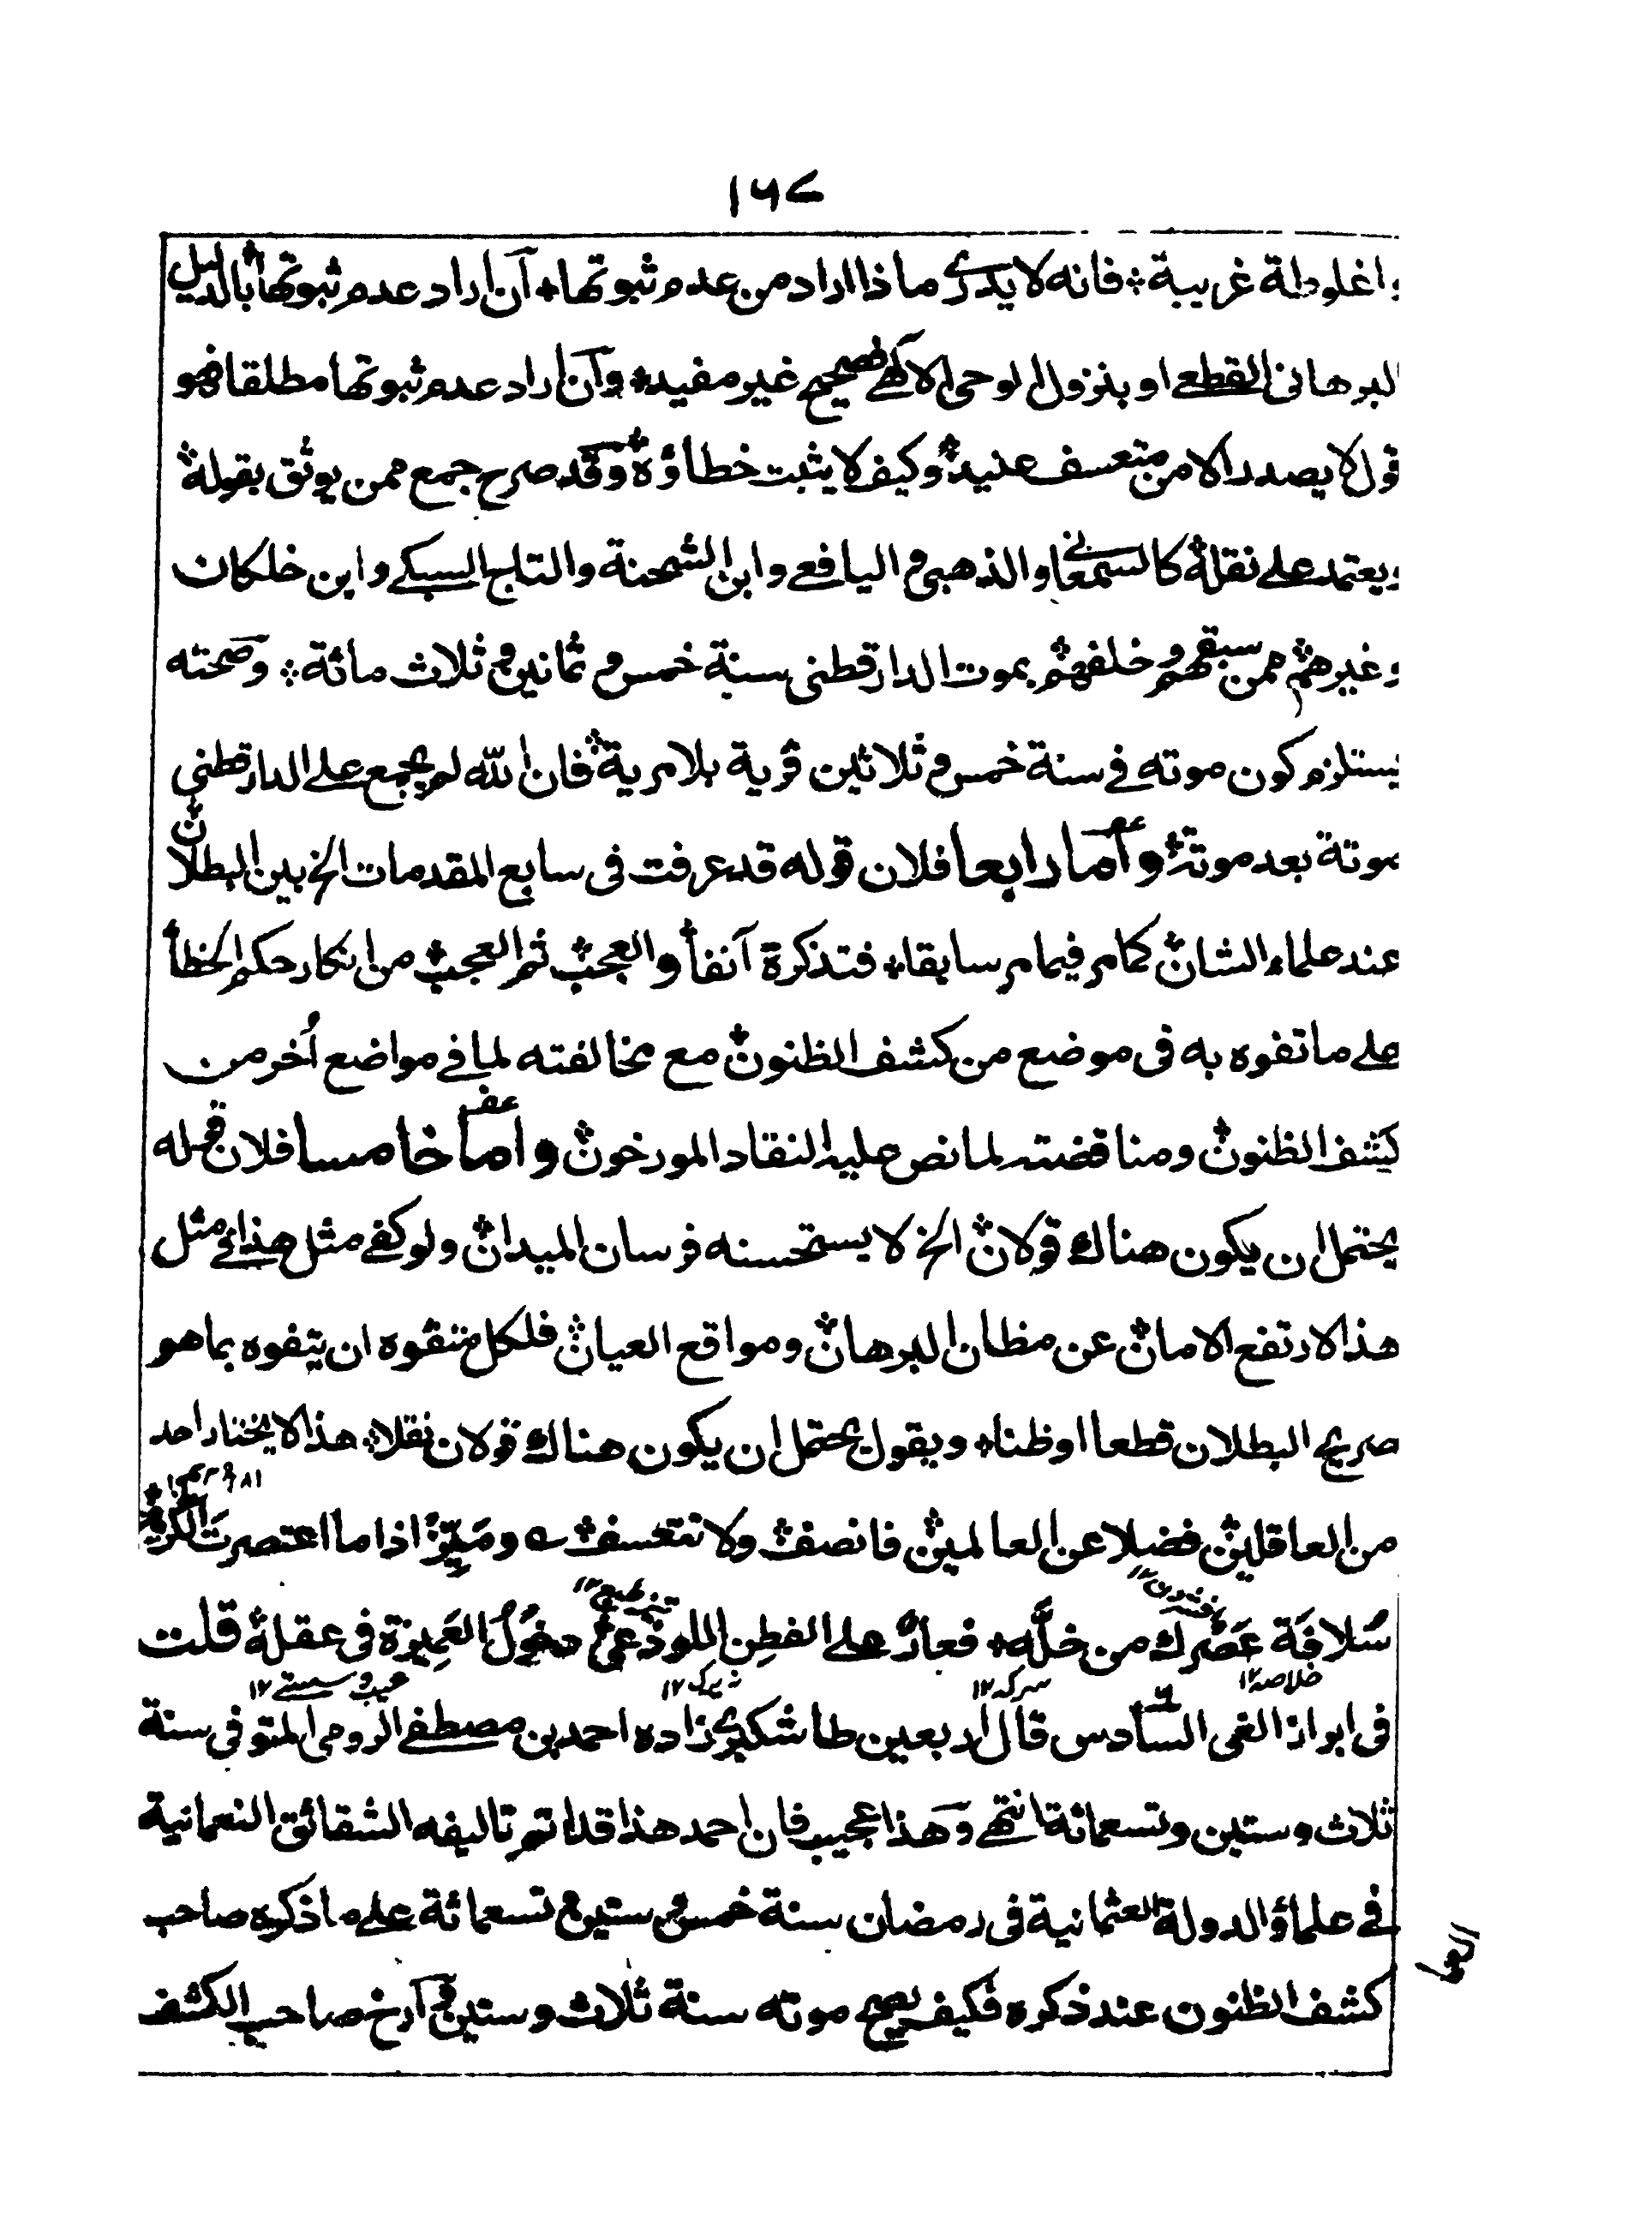 ۱۶۷
واغلوطة غريبة فانه لا يدرى ماذا اراد من عدم ثبوتها آن اراد عدم ثبوتها بالدليل
البرهانى القطعے او بنزول الوحى الالٰهے فصحيح غير مفيد وآن اراد عدم ثبوتها مطلقا فهو
قول لا يصدر الا من متعسف عنيد وكيف لا يثبت خطاؤه وقد صرح جمع ممن يوثق بقوله
ويعتمد علے نقله كالسمعانى والذهبى واليافعے وابن الشحنة والتاج السبكے وابن خلكان
وغيرهم ممن سبقهم وخلفهم بموت الدارقطنى سنة خمس وثمانين وثلاث مائة وصحته
يستلزم كون موته فى سنة خمس وثلاثين فرية بلا مرية فان الله لم يجمع على الدارقطنى
موتة بعد موتة وآما رابعا فلان قوله قد عرفت فى سابع المقدمات الخ بين البطلان
عند علماء الشان كما مر فيما مر سابقا فتذكره آنفا والعجب ثم العجب من انكار حكم الخطأ
علے ما تفوه به فى موضع من كشف الظنون مع مخالفته لما فے مواضع اُخر من
كشف الظنون ومناقضته لما نص عليه النقاد المورخون وآما خامسا فلان قوله
يحتمل ان يكون هناك قولان الخ لا يستحسنه فرسان الميدان ولو كفے مثل هذا فے مثل
هذا لارتفع الامان عن مظان البرهان ومواقع العيان فلكل متفوه ان يتفوه بما هو
صريح البطلان قطعا او ظنا ويقول يحتمل ان يكون هناك قولان نقلا هذا لا يختاره احد
من العاقلين فضلا عن العالمين فانصف ولا تتعسف ؎ ومَيِّز اذا ما اعتصرتَ الكَرْم
سُلافَة عَصْرك من خلَّه فعارٌ علے الفطِن اللوذعى دخولُ الغَمِيزة فى عقله قلت
خلاصه ۱۲ سركه ۱۲ زيرك ۱۲ عيب وسستے ۱۲
فى ابراز الغى السادس قال اربعين طاشكبرى زاده احمد بن مصطفے الرومى المتوفى سنة
ثلاث وستين وتسعمائة انتهے وهذا عجيب فان احمد هذا قد اتم تاليفه الشقائق النعمانية
فے علماء الدولة العثمانية فى رمضان سنة خمس وستين وتسعمائة علے ما ذكره صاحب
كشف الظنون عند ذكره فكيف يصح موته سنة ثلاث وستين وآرخ صاحب الكشف